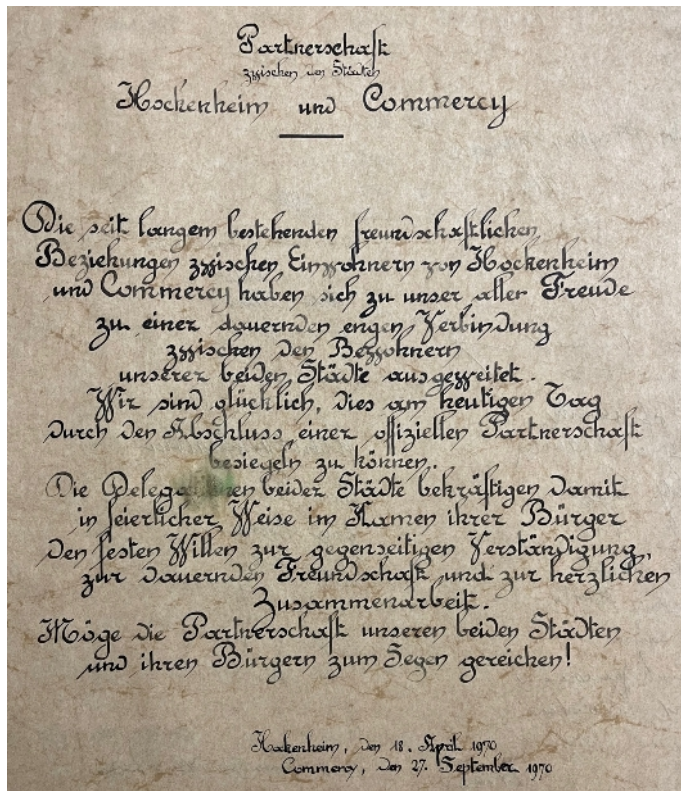 Partnerschaft
zwischen den Städten
Hockenheim und Commercy
Die seit langem bestehenden freundschaftlichen
Beziehungen zwischen Einwohnern von Hockenheim
und Commercy haben sich zu unser aller Freude
zu einer dauernden engen Verbindung
zwischen den Bewohnern
unserer beiden Städte ausgeweitet.
Wir sind glücklich, dies am heutigen Tag
durch den Abschluss einer offiziellen Partnerschaft
besiegeln zu können.
Die beider Städte bekräftigen damit
in feierlicher Weise im Namen ihrer Bürger
den festen Willen zur gegenseitigen Verständigung,
zur dauernden Freundschaft und zur herzlichen
Zusammenarbeit.
Möge die Partnerschaft unseren beiden Städten
und ihren Bürgern zum Segen gereichen!
Hockenheim, den 18. April 1970
Commercy, den 27. September 1970